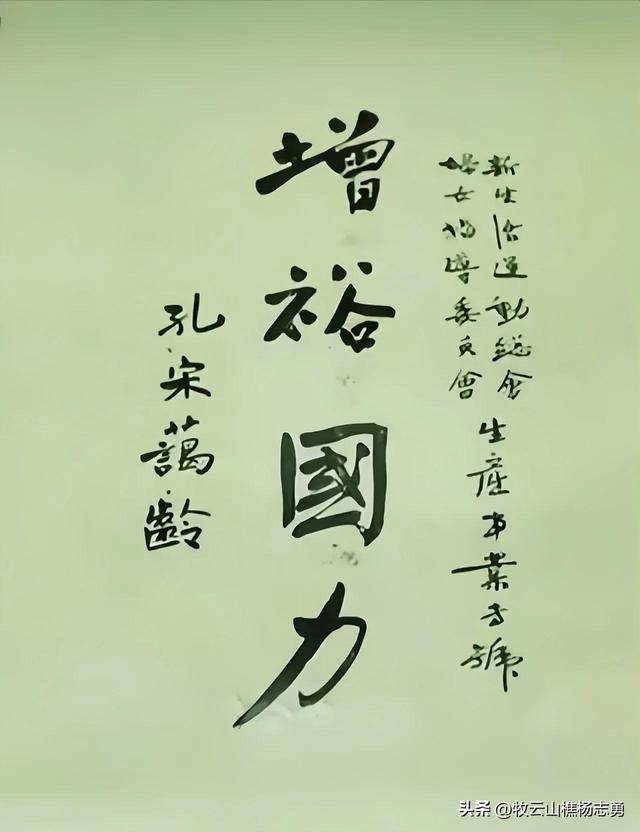 新生活運動總會
婦女指導委員會
生產事業專號
增裕國力
孔宋藹齡
头条 @牧云山樵杨志勇